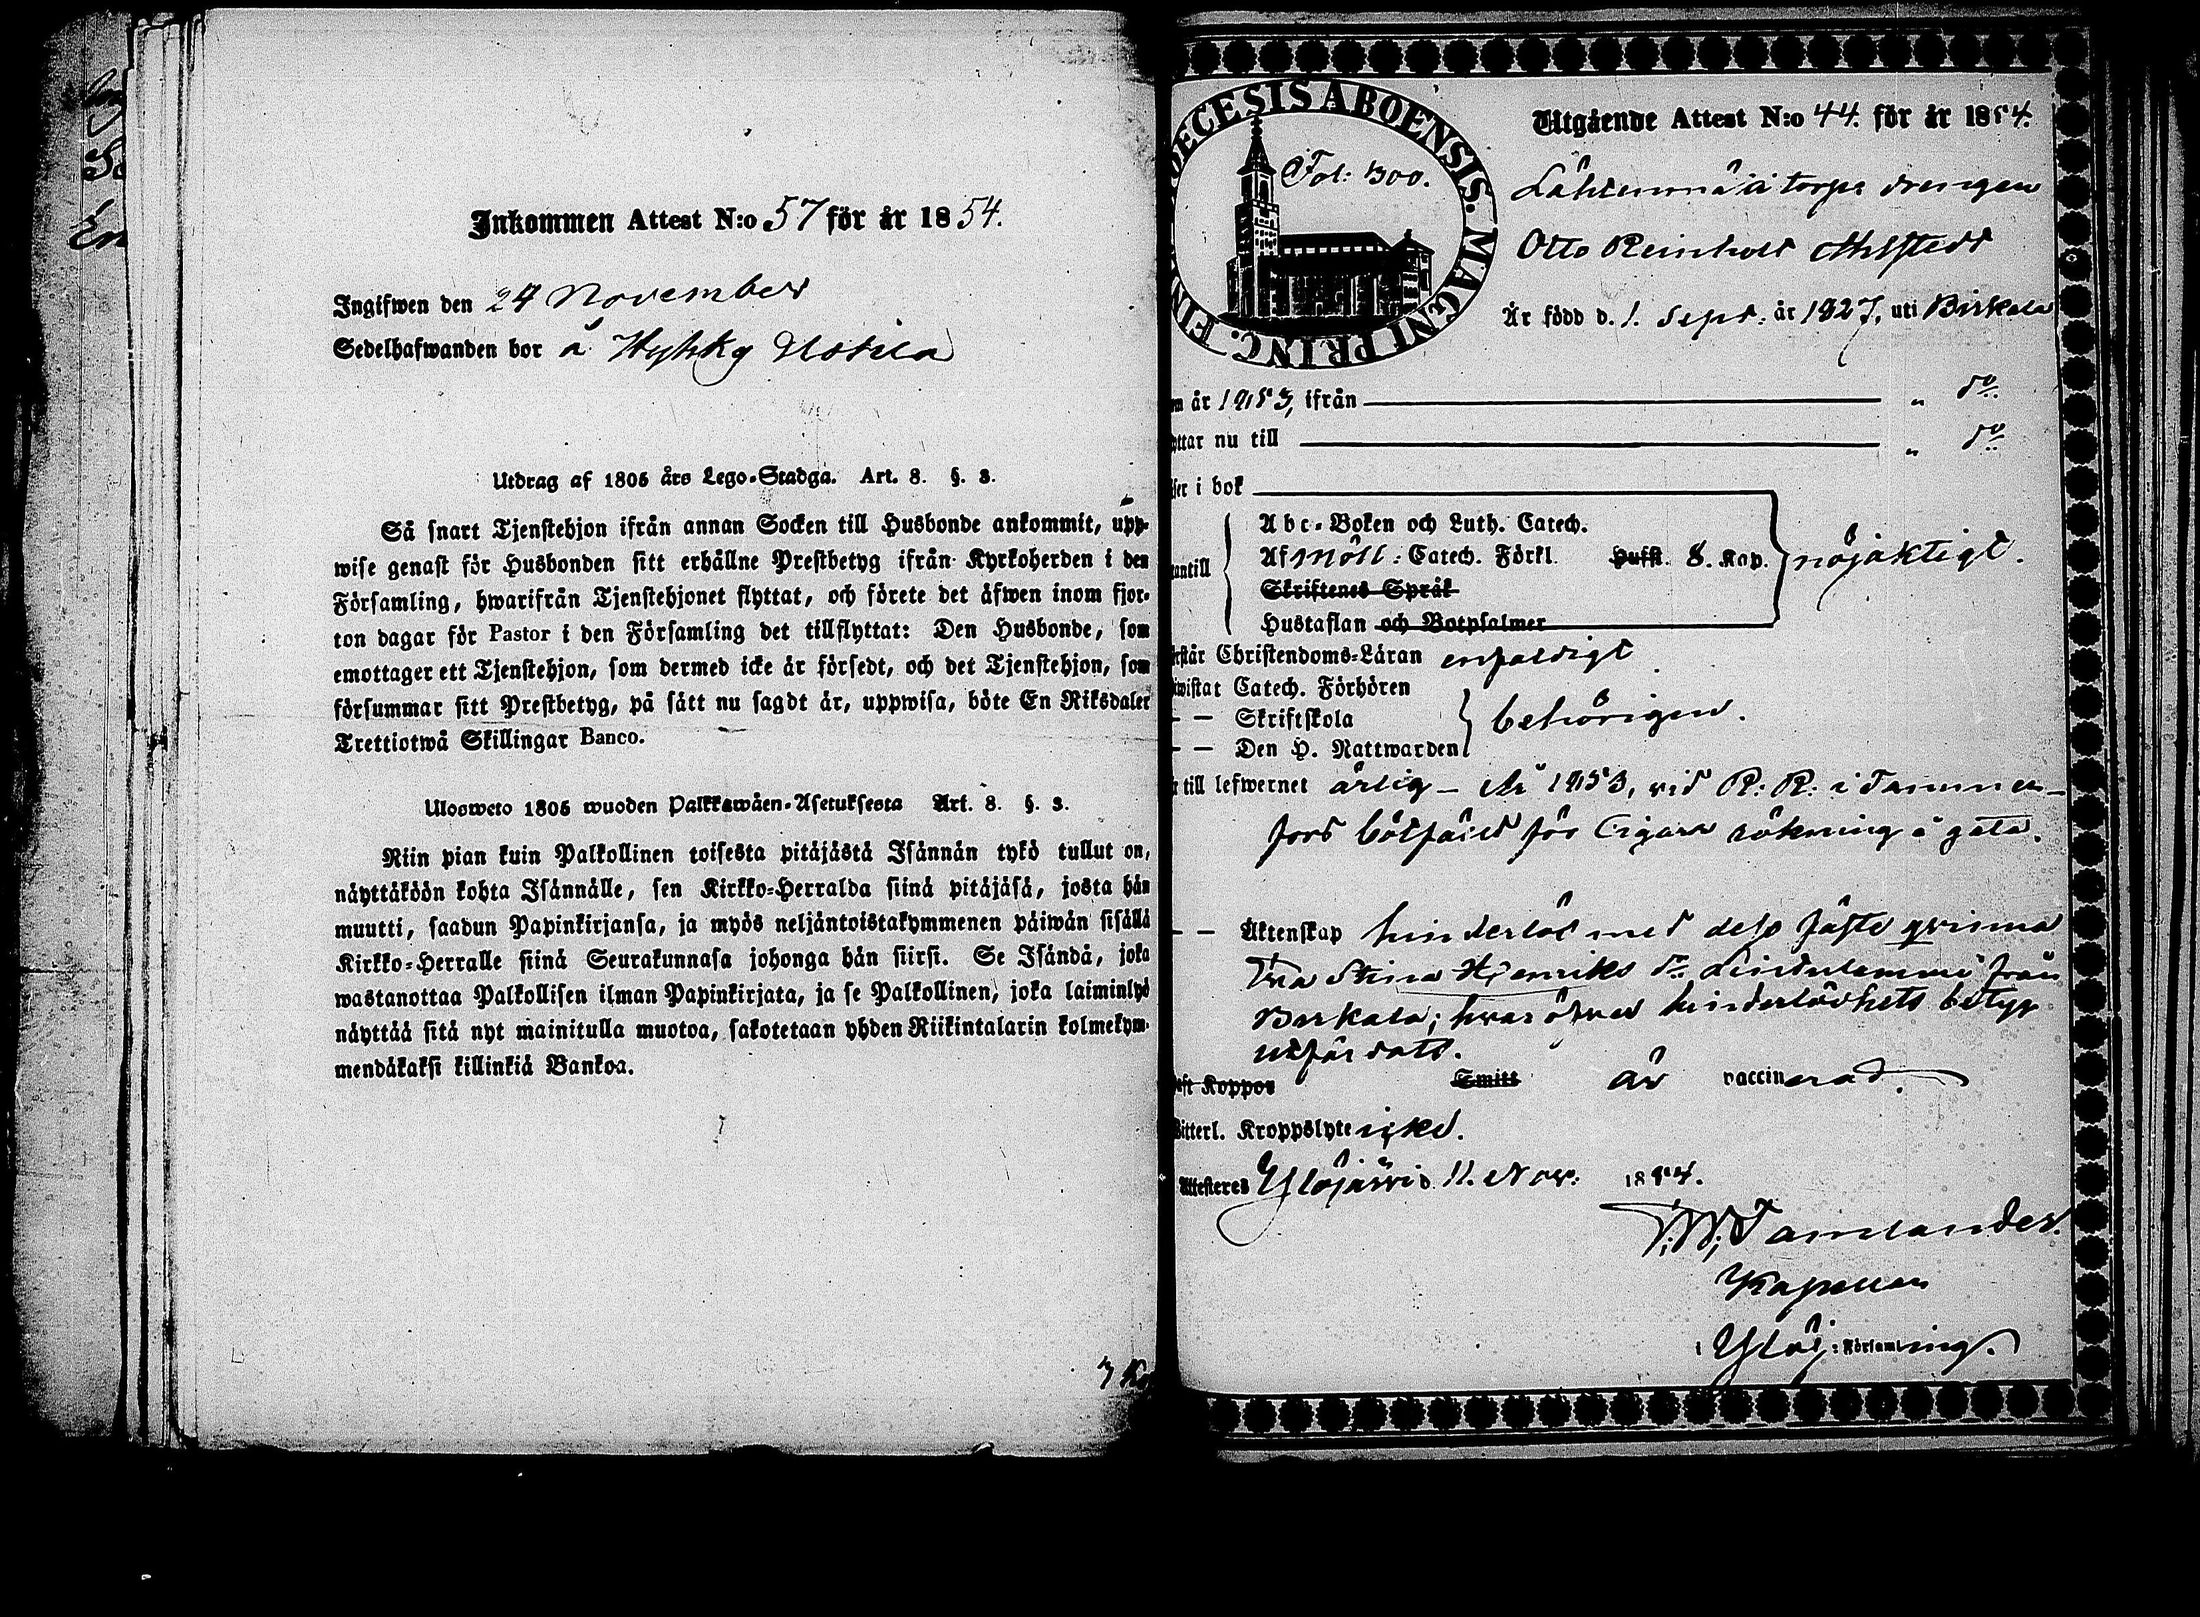 Inkommen Attest N:o 57 för år 1854.
Ingifwen den 24 November
Sedelhafwanden bor å Hykky Uotila
Utdrag af 1805 års Lego-Stadga. Art. 8. §. 3.
Så snart Tjenstehjon ifrån annan Socken till Husbonde ankommit, upp-
wise genast för Husbonden sitt erhållne Prestbetyg ifrån Kyrkoherden i den
Församling, hwarifrån Tjenstehjonet flyttat, och förete det äfwen inom fjor-
ton dagar för Pastor i den Församling det tillflyttat: Den Husbonde, som
emottager ett Tjenstehjon, som dermed icke är försedt, och det Tjenstehjon, som
försummar sitt Prestbetyg, på sätt nu sagdt är, uppwisa, böte En Riksdaler
Trettiotwå Skillingar Banco.
Ulosweto 1805 wuoden Palkkawäen-Asetuksesta Art. 8. §. 3.
Niin pian kuin Palkollinen toisesta pitäjästä Isännän tykö tullut on,
näyttäköön kohta Isännälle, sen Kirkko-Herralda siinä pitäjäsä, josta hän
muutti, saadun Papinkirjansa, ja myös neljäntoistakymmenen päiwän sisällä
Kirkko-Herralle siinä Seurakunnasa johonga hän siirsi. Se Isändä, joka
wastanottaa Palkollisen ilman Papinkirjata, ja se Palkollinen, joka laiminlyö
näyttää sitä nyt mainitulla muotoa, sakotetaan yhden Riikintalarin kolmekym-
mendäkaksi killinkiä Bankoa.
DECESIS ABOENSIS. MAGNI PRINC. FIN
Fol: 300.
Utgående Attest N:o 44. för år 1854.
torpar drengen
Otto Reinhold Ahlstedt
Är född d. 1. Sept: år 1827, uti Birkala
år 1853, ifrån " do
ttar nu till " do
i bok
Abc-Boken och Luth. Catech.
Af Möll: Catech. Förkl. Husst. 8. Kap.
antill
nöjaktigt.
Skriftenes Språk
Hustaflan och Botpsalmer
står Christendoms-Läran enfaldigt
wistat Catech. Förhören
— — Skriftskola
behörigen.
— — Den H. Nattwarden
till lefwernet ärlig – Är 1853, vid R: R: i Tammer-
fors bötfäld för Cigarr rökning å gata.
— — Äktenskap hinderlös med dess fäste qvinna
Eva Stina Henriks dr. från
Birkala; hvaröfver hinderlöshets betyg
utfärdats.
Koppor Smitt är vaccinerad.
Witterl. Kroppslyte icke.
Attesteres Ylöjärvi d. 11. Nov: 1854.
Tamlander.
Kapellan
i Ylöj: Församling.